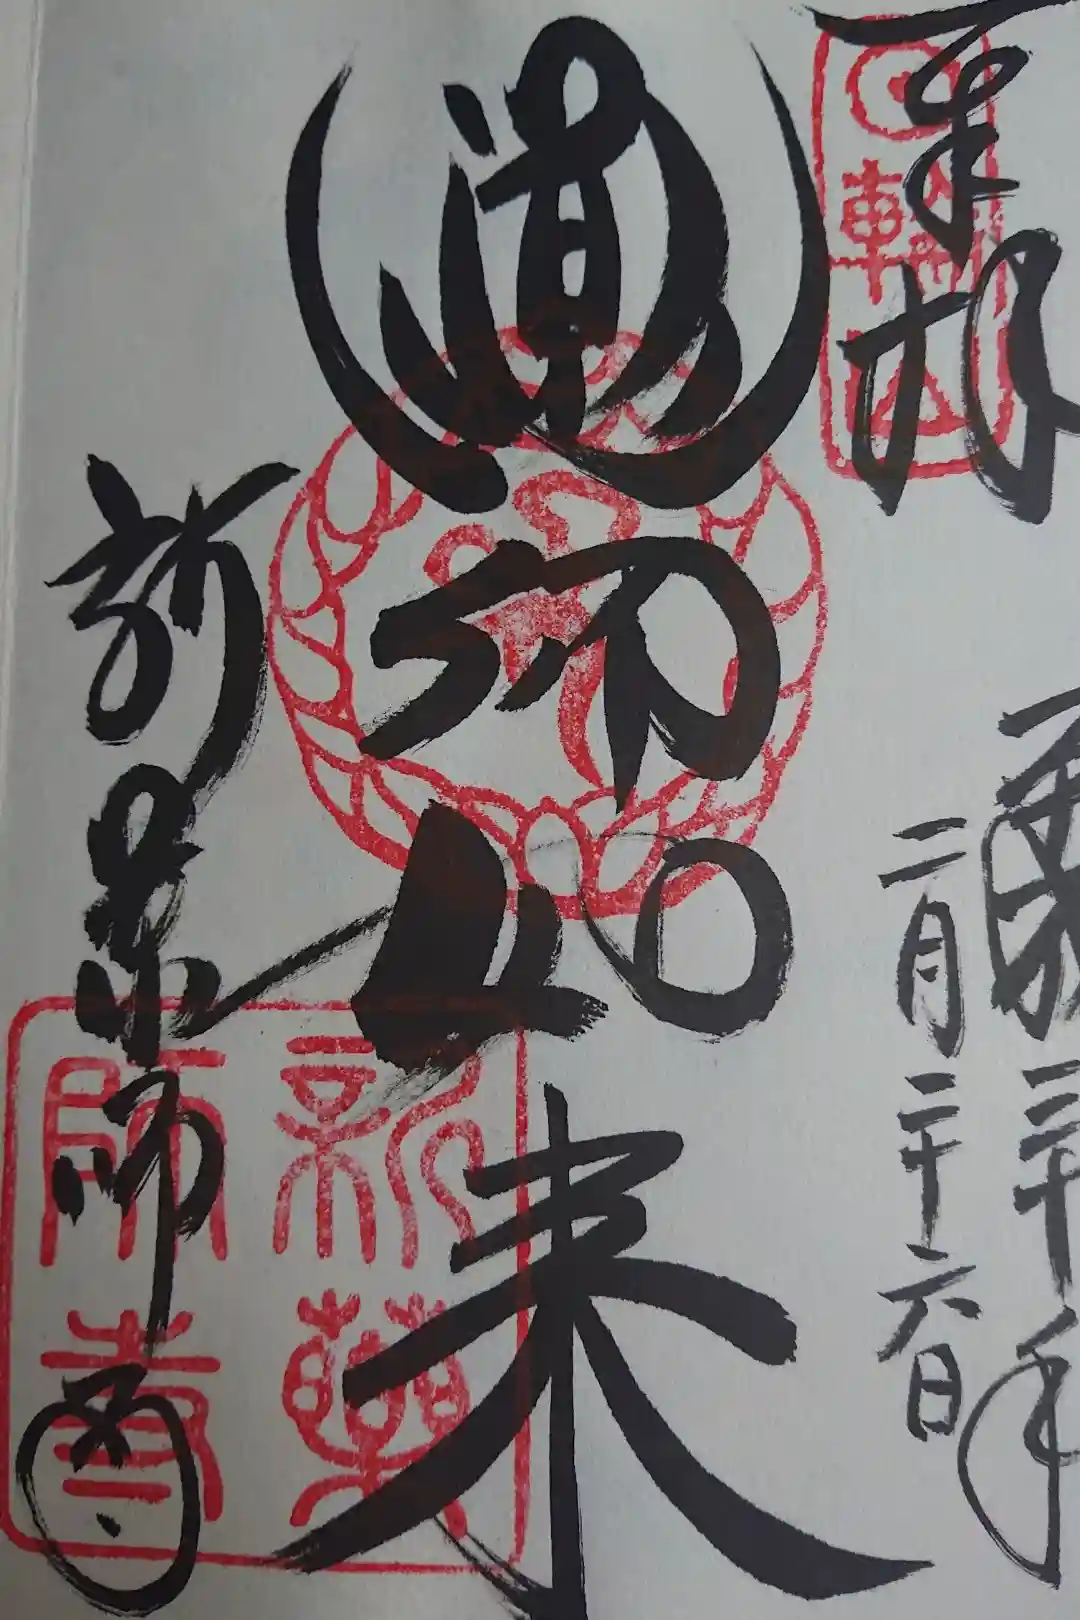 奉拝
三十年
二月二十六日
薬師如来
新薬師寺
日輪山
新薬師寺